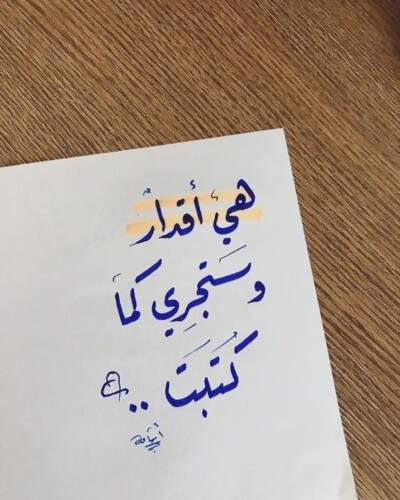 هيَ أقدارٌ
وسَتجرِي كمَا
كُتبَتَ ..